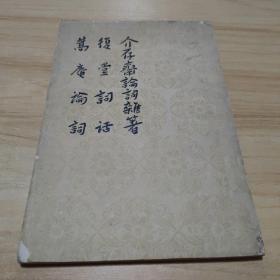 介存齋論詞雜著
復堂詞話
蒿庵論詞